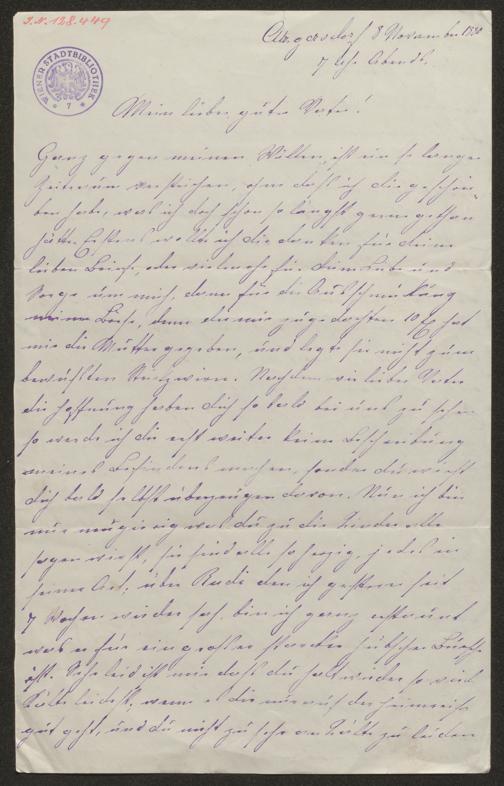 I.N. 128.449
WIENER STADTBIBLIOTHEK
7
Atzgersdorf 8 November
7 Uhr Abends.
Mein lieber, guter Vater!
Ganz gegen meinen Willen, ist ein so langer
Zeitraum verstrichen, ohne daß ich dir geschrie-
ben habe, was ich doch schon so längst gern gethan
hätte. Erstens wollte ich dir danken für deine
lieben Briefe, oder vielmehr für deine Liebe und
Sorge um mich, dann für die Ausschmückung
meiner Börse, denn die mir zugedachten 10 hat
mir die Mutter gegeben, und legte sie mit zum
bewußten. Nachdem wir lieber Vater
die Hoffnung haben dich so bald bei uns zu sehen
so werde ich dir erst weiter keine Beschreibung
meines Befindens machen, sondern du wirst
dich bald selbst überzeugen davon. Nur ich bin
nur neugierig was du zu die Kinder alle
sagen wirst, sie sind alle so herzig, jedes in
seiner Art, über Rudi den ich gestern seit
7 Wochen wieder sah, bin ich ganz erstaunt
was er für ein großer starker hübscher Bursche
ist. Sehr leid ist mir daß du halt wieder so viel
Kälte leidest, wenn es dir nur auf der Heimreise
gut geht, und du nicht zu sehr von Kälte zu leiden